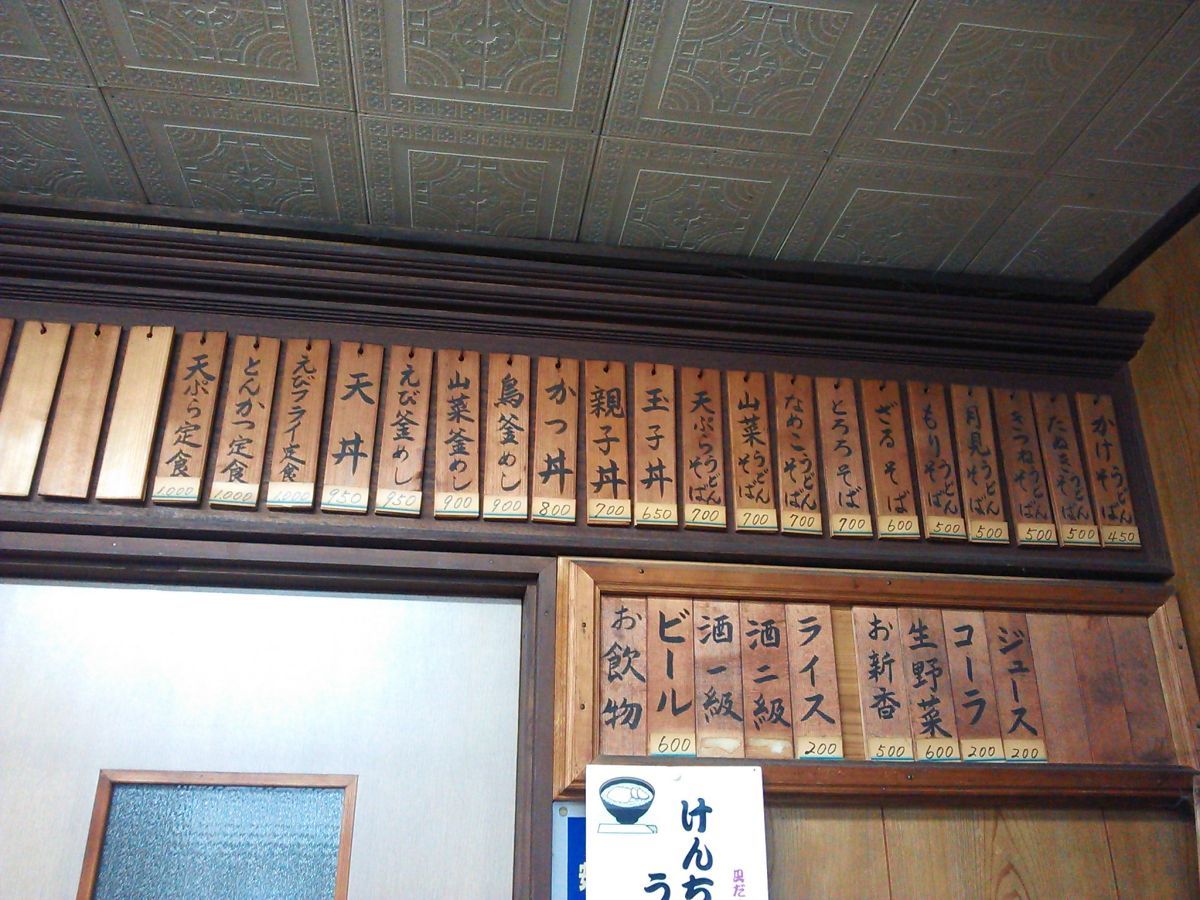 かけうどんそば 450
たぬきうどんそば 500
きつねうどんそば 500
月見うどんそば 500
もりうどんそば 500
ざるそば 600
とろろそば 700
なめこうどんそば 700
山菜うどんそば 700
天ぷらうどんそば 700
玉子丼 650
親子丼 700
かつ丼 800
鳥釜めし 900
山菜釜めし 900
えび釜めし 950
天丼 950
えびフライ定食 1000
とんかつ定食 1000
天ぷら定食 1000
ジュース 200
コーラ 200
生野菜 600
お新香 500
ライス 200
酒二級
酒一級
ビール 600
お飲物
けんち
う